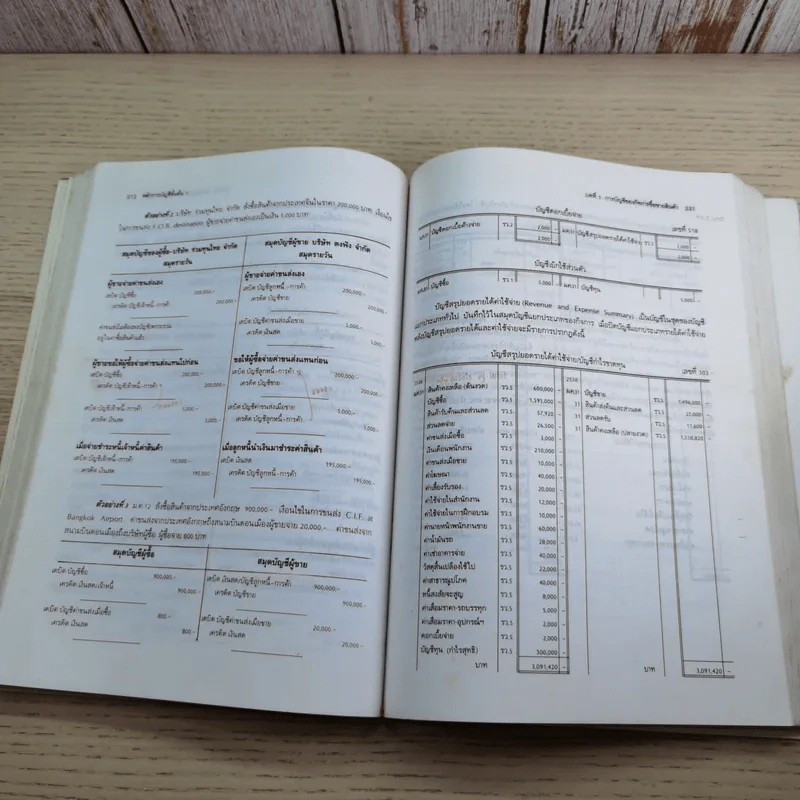 212 หลักการบัญชีขั้นต้น 1
ตัวอย่างที่ 2 บริษัท รวมทุนไทย จำกัด สั่งซื้อสินค้าจากประเทศจีนในราคา 200,000 บาท เงื่อนไข
ในการขนส่ง F.O.B. destination ผู้ขายจ่ายค่าขนส่งเองเป็นเงิน 5,000 บาท
สมุดบัญชีของผู้ซื้อ-บริษัท รวมทุนไทย จำกัด
สมุดรายวัน
ผู้ขายจ่ายค่าขนส่งเอง
เดบิต บัญชีซื้อ 200,000.-
เครดิต บัญชีเจ้าหนี้-การค้า 200,000.-
ผู้ขายขอให้ผู้ซื้อจ่ายค่าขนส่งแทนไปก่อน
เดบิต บัญชีซื้อ 200,000.-
เครดิต บัญชีเจ้าหนี้-การค้า 200,000.-
เดบิต บัญชีเจ้าหนี้-การค้า 5,000.-
เครดิต เงินสด 5,000.-
เมื่อจ่ายชำระหนี้เจ้าหนี้ค่าสินค้า
เดบิต บัญชีเจ้าหนี้-การค้า 195,000.-
เครดิต เงินสด 195,000.-
สมุดบัญชีผู้ขาย บริษัท ตงฟัง จำกัด
สมุดรายวัน
ผู้ขายจ่ายค่าขนส่งเอง
เดบิต บัญชีลูกหนี้-การค้า 200,000.-
เครดิต บัญชีขาย 200,000.-
เดบิต บัญชีค่าขนส่งเมื่อขาย 5,000.-
เครดิต เงินสด 5,000.-
ขอให้ผู้ซื้อจ่ายค่าขนส่งแทนก่อน
เดบิต บัญชีลูกหนี้-การค้า 200,000.-
เครดิต บัญชีขาย 200,000.-
เดบิต บัญชีค่าขนส่งเมื่อขาย 5,000.-
เครดิต บัญชีลูกหนี้-การค้า 5,000.-
เมื่อลูกหนี้นำเงินมาชำระค่าสินค้า
เดบิต เงินสด 195,000.-
เครดิต บัญชีลูกหนี้-การค้า 195,000.-
ตัวอย่างที่ 3 ม.ค. 12 สั่งซื้อสินค้าจากประเทศอังกฤษ 900,000.- เงื่อนไขในการขนส่ง C.I.F. at
Bangkok Airport ค่าขนส่งจากประเทศอังกฤษถึงสนามบินดอนเมืองผู้ขายจ่าย 20,000.- ค่าขนส่งจาก
สนามบินดอนเมืองถึงบริษัทผู้ซื้อ ผู้ซื้อจ่าย 800 บาท
สมุดบัญชีผู้ซื้อ
เดบิต บัญชีซื้อ 900,000.-
เครดิต เงินสด/เจ้าหนี้ 900,000.-
เดบิต บัญชีค่าขนส่งเมื่อซื้อ 800.-
เครดิต เงินสด 800.-
สมุดบัญชีผู้ขาย
เดบิต เงินสด/บัญชีลูกหนี้-การค้า 900,000.-
เครดิต บัญชีขาย 900,000.-
เดบิต บัญชีค่าขนส่งเมื่อขาย 20,000.-
เครดิต เงินสด 20,000.-
บัญชีดอกเบี้ยจ่าย
เลขที่ 518
บัญชีดอกเบี้ยค้างจ่าย รว.5 2,000 - บัญชีสรุปยอดรายได้ค่าใช้จ่าย รว.5
2,000 -
บัญชีเบิกใช้ส่วนตัว
บัญชีซื้อ รว.1 5,000 - บัญชีทุน 5,000 -
บัญชีสรุปยอดรายได้ค่าใช้จ่าย (Revenue and Expense Summary) เป็นบัญชีในชุดของบัญชี
แยกประเภททั่วไป บันทึกไว้ในสมุดบัญชีแยกประเภทของกิจการ เมื่อปิดบัญชีแยกประเภทรายได้ค่าใช้จ่าย
หลังบัญชีสรุปยอดรายได้และค่าใช้จ่ายจะมีรายการปรากฏดังนี้
บัญชีสรุปยอดรายได้ค่าใช้จ่าย/บัญชีกำไรขาดทุน
เลขที่ 303
สินค้าคงเหลือ (ต้นงวด) รว.5 600,000 -
บัญชีซื้อ รว.5 1,595,000 -
สินค้ารับคืนและส่วนลด รว.5 57,920 -
ส่วนลดจ่าย รว.5 26,500 -
ค่าขนส่งเมื่อซื้อ รว.5 3,000 -
เงินเดือนพนักงาน รว.5 210,000 -
ค่าขนส่งเมื่อขาย รว.5 10,000 -
ค่าโฆษณา รว.5 40,000 -
ค่าเลี้ยงรับรอง รว.5
ค่าใช้จ่ายในสำนักงาน รว.5
ค่าใช้จ่ายในการฝึกอบรม รว.5
ค่านายหน้าพนักงานขาย รว.5
ค่าน้ำมันรถ รว.5
ค่าเช่าอาคารจ่าย รว.5
วัสดุสิ้นเปลืองใช้ไป รว.5 22,000 -
ค่าสาธารณูปโภค รว.5 40,000 -
หนี้สงสัยจะสูญ รว.5 8,000 -
ค่าเสื่อมราคา-รถบรรทุก รว.5
ค่าเสื่อมราคา-อุปกรณ์ฯ รว.5 2,000 -
ดอกเบี้ยจ่าย รว.5 2,000 -
บัญชีทุน (กำไรสุทธิ) รว.5 300,000 -
บาท 3,091,420 -
2538
บัญชีขาย รว.5
31 สินค้าส่งคืนและส่วนลด รว.5
31 ส่วนลดรับ รว.5
31 สินค้าคงเหลือ (ปลายงวด) รว.5
บาท 3,091,420 -